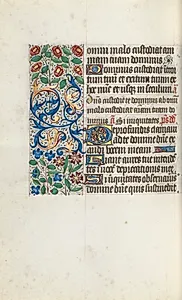 omni malo custodiat ani
mam tuam dominus
Dominus custodiat introi
tum tuū et exitum tuum ex
hoc nūc et usq; in seculum
Dn̄s custodit te dominus ab om̄i
malo custodiat animam tuam do
minus Si iniquitates ps
De profundis clamaui
ad te domine dn̄e ex
audi vocem meam
Fiant aures tue intende
tes in vocē deprecationis mee
Si iniquitates obseruaueris
domine dn̄e quis sustinebit